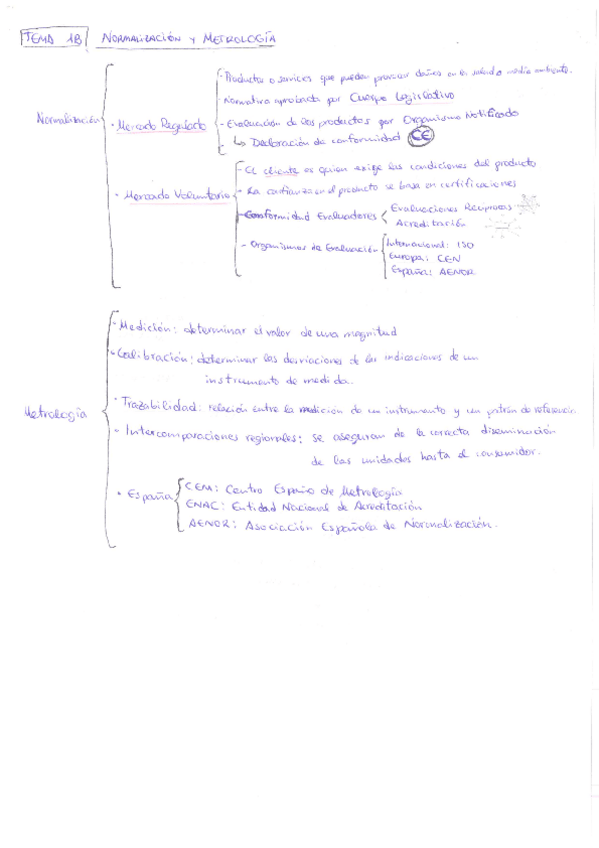 TEMA 1B NORMALIZACIÓN Y METROLOGÍA
Normalización
· Mercado Regulado
- Productos o servicios que puedan provocar daños en la salud o medio ambiente.
- Normativa aprobada por Cuerpo Legislativo
- Evaluación de los productos por Organismo Notificado
- ↳ Declaración de conformidad CE
· Mercado Voluntario
- El cliente es quien exige las condiciones del producto
- La confianza en el producto se basa en certificaciones
- Conformidad Evaluadores
Evaluaciones Recíprocas
Acreditación
- Organismos de Evaluación
Internacional: ISO
Europa: CEN
España: AENOR
Metrología
· Medición: determinar el valor de una magnitud
· Calibración: determinar las desviaciones de las indicaciones de un
instrumento de medida.
· Trazabilidad: relación entre la medición de un instrumento y un patrón de referencia.
· Intercomparaciones regionales: se aseguran de la correcta diseminación
de las unidades hasta el consumidor.
· España
CEM: Centro Español de Metrología
ENAC: Entidad Nacional de Acreditación
AENOR: Asociación Española de Normalización.